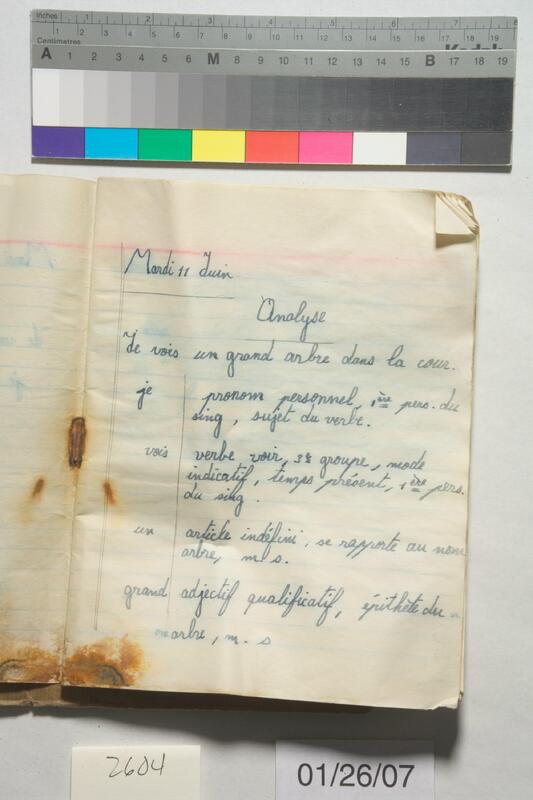 Centimetres
Kodak
A 1 2 3 4 5 6 7 8 M 9 10 11 12 13 14 15 B 17 18 19
Mardi 11 Juin
Analyse
Je vois un grand arbre dans la cour.
je pronom personnel, 1ère pers. du
sing, sujet du verbe.
vois verbe voir, 3e groupe, mode
indicatif, temps présent, 1ère pers.
du sing.
un article indéfini, se rapporte au nom
arbre, m. s.
grand adjectif qualificatif, épithète du
arbre, m. s
2604
01/26/07